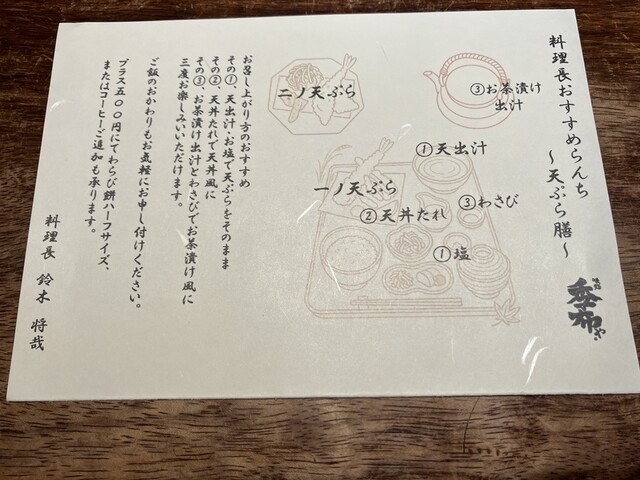 料理長おすすめらんち
～天ぷら膳～
季布や
③お茶漬け
出汁
二ノ天ぷら
①天出汁
一ノ天ぷら
②天丼たれ
③わさび
①塩
お召し上がり方のおすすめ
その①、天出汁・お塩で天ぷらをそのまま
その②、天丼たれで天丼風に
その③、お茶漬け出汁とわさびでお茶漬け風に
三度お楽しみいいただけます。
ご飯のおかわりもお気軽にお申し付けください。
プラス五〇〇円にてわらび餅ハーフサイズ、
またはコーヒーご追加も承ります。
料理長 鈴木 将哉